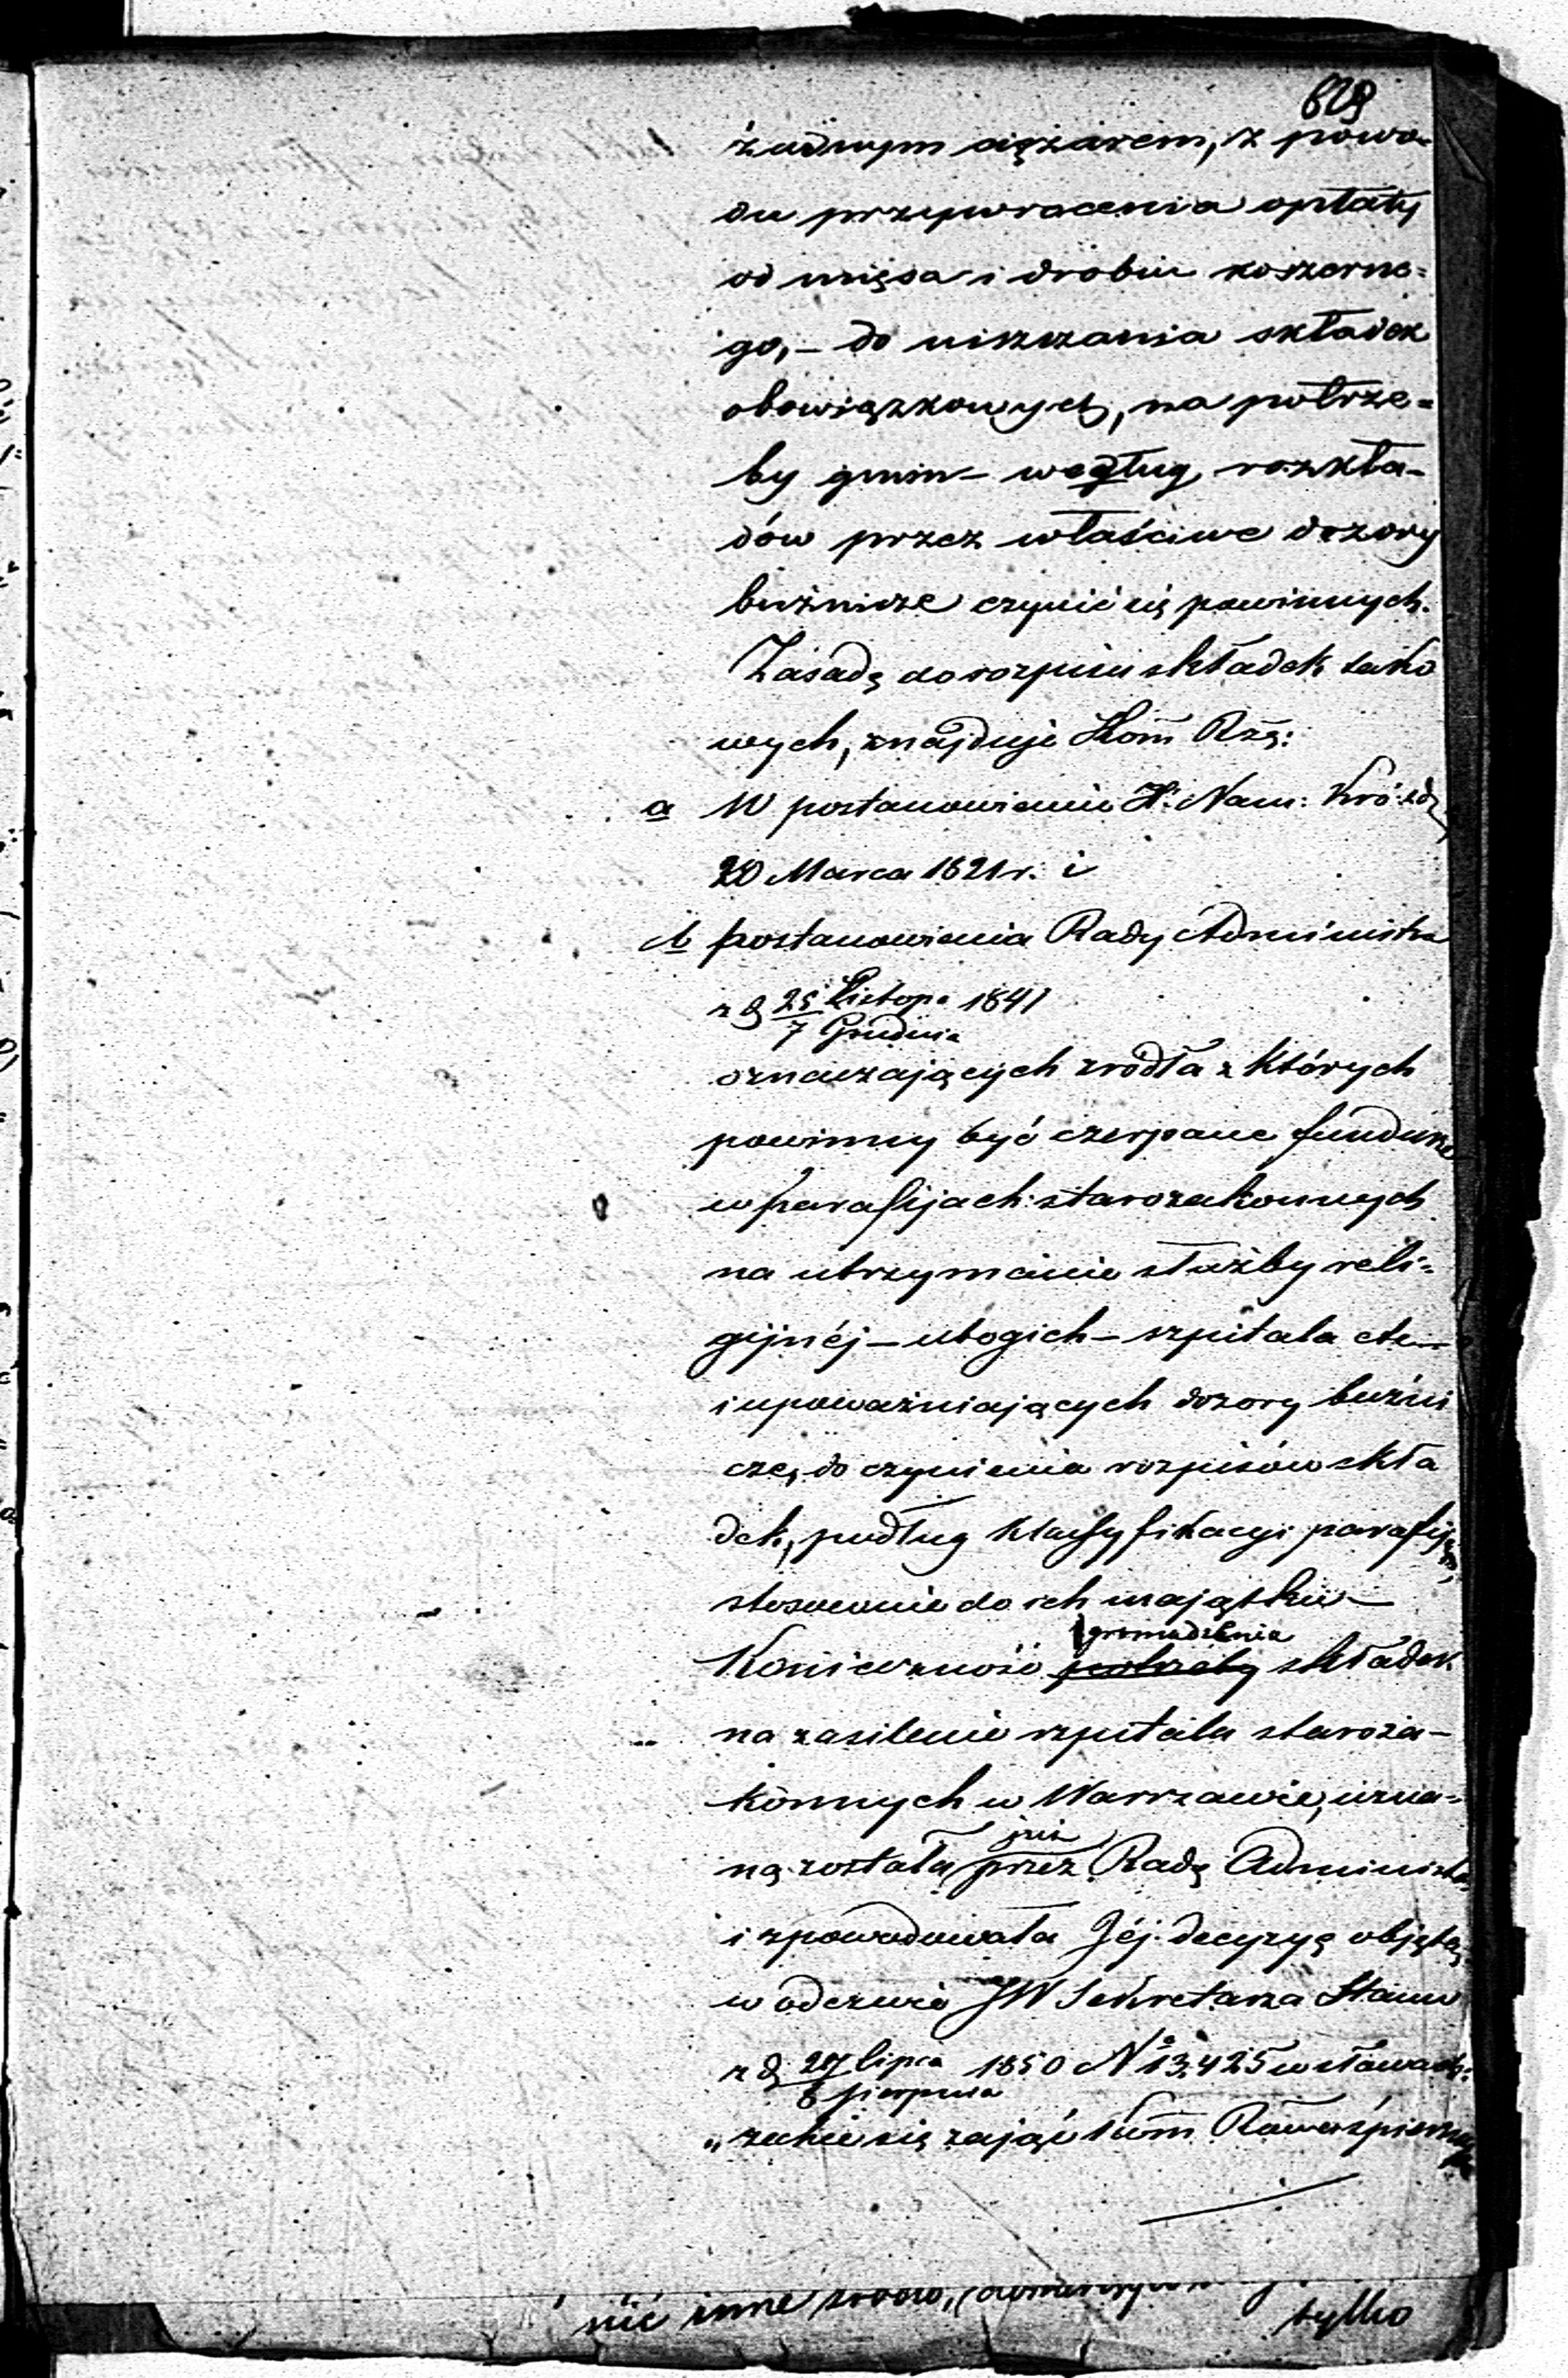 629
żadnym ciężarem, z powo-
du przywrócenia opłaty
od mięsa i drobiu koszerne=
go, – do uiszczania składek
obowiązkowych, na potrze=
by gmin – według rozkła-
dów przez właściwe dozory
bużnicze czynić się powinnych.
Zasadę do rozpisu składek tako
wych, znajduje Kom Rzą:
a W postanowieniu X: Nam: Kró: z d
20 Marca 1821 r. i
b postanowienia Rady Administra
z d 25 Listopa 1841
7 Grudnia
oznaczających zródła z których
powinny być czerpane fundusze
w parafijach starozakonnych
na utrzymanie służby reli=
gijnéj – ubogich – szpitala etc –
i upoważniających dozory buźni
cze, do czynienia rozpisów skła
dek, podług klassyfikacyi parafij
stosownie do ich majątku –
gromadzenia
Konieczność potrzeby składek
na zasilenie szpitala staroza-
konnych w Warszawie, uzna=
już
ną została przez Radę Administra
i spowodowała Jéj decyzyę objętą
w odezwie JW Sekretarza Stanu
z d 27 lipca 1850 N° 13,425 w słowach:
8 sierpnia
„zechce się zająć Kom
nić inne
tylko